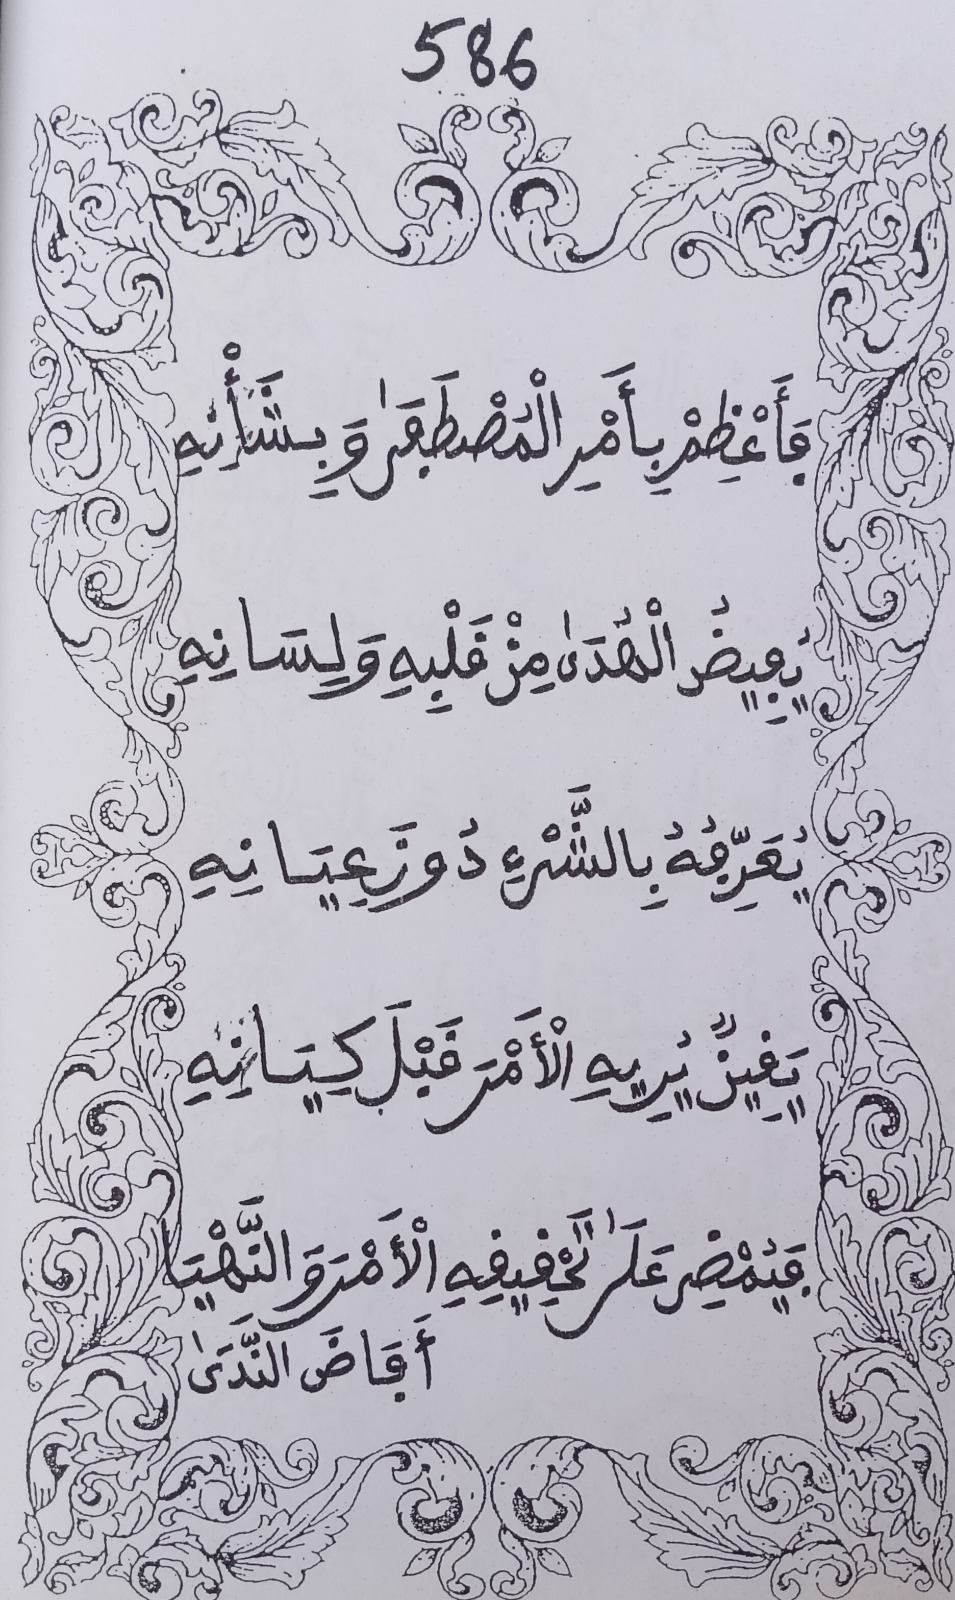 586
فَأَعْظِمْ بِأَمْرِ الْمُصْطَفَىٰ وَبِشَأْنِهِ
يُفِيضُ الْهُدَىٰ مِنْ قَلْبِهِ وَلِسَانِهِ
يُعَرِّفُهُ بِالشَّرْءِ دُونَ عِيَانِهِ
يَقِينٌ يُرِيهِ الْأَمْرَ قَبْلَ كِيَانِهِ
فَيُمْضِي عَلَىٰ تَحْقِيقِهِ الْأَمْرَ وَالنَّهْيَا
أَفَاضَ النَّدَىٰ